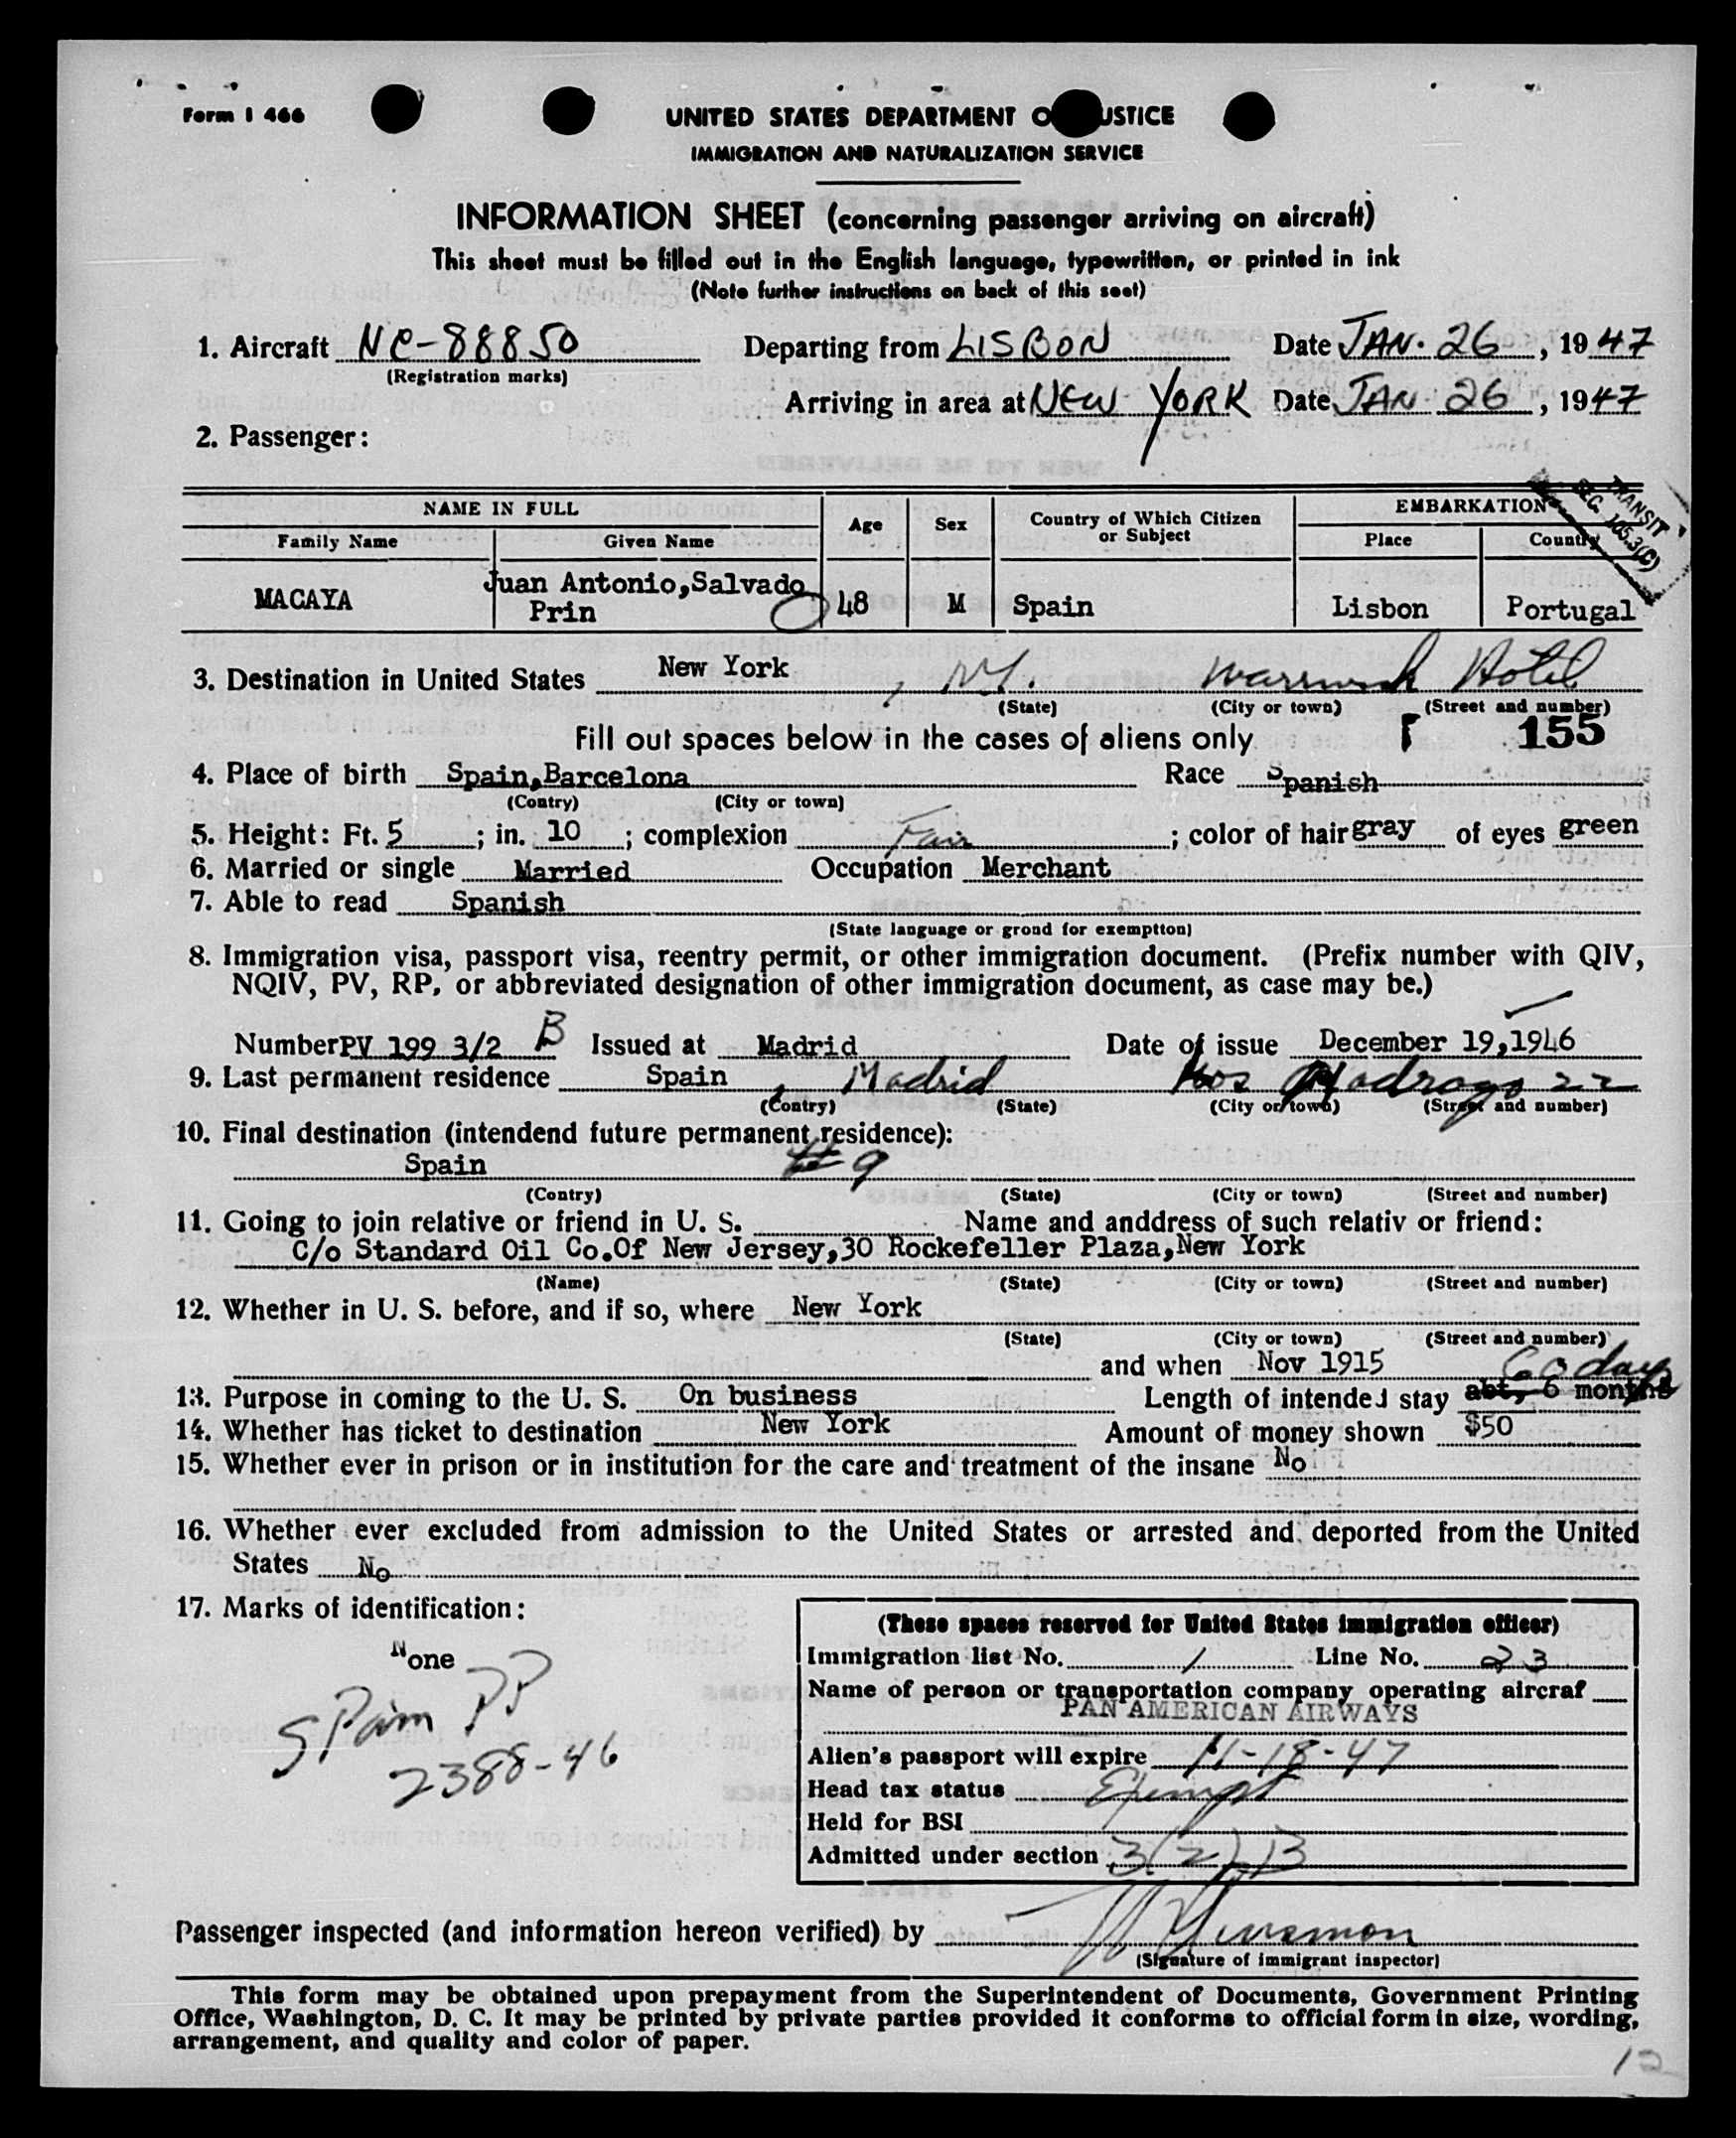 Form I 466
UNITED STATES DEPARTMENT O USTICE
IMMIGRATION AND NATURALIZATION SERVICE
INFORMATION SHEET (concerning passenger arriving on aircraft)
This sheet must be filled out in the English language, typewritten, or printed in ink
(Note further instructions on back of this seet)
1. Aircraft NC-88850 Departing from LISBON Date JAN. 26, 1947
(Registration marks)
Arriving in area at NEW YORK Date JAN 26, 1947
2. Passenger:
TRANSIT
SEC. 105.3(C)
NAME IN FULL Age Sex Country of Which Citizen or Subject EMBARKATION
Family Name Given Name Place Country
MACAYA Juan Antonio,Salvado Prin 48 M Spain Lisbon Portugal
3. Destination in United States New York, NY. Warwick Hotel
(State) (City or town) (Street and number)
Fill out spaces below in the cases of aliens only 155
4. Place of birth Spain,Barcelona Race Spanish
(Contry) (City or town)
5. Height: Ft. 5; in. 10; complexion Fair; color of hair gray of eyes green
6. Married or single Married Occupation Merchant
7. Able to read Spanish
(State language or grond for exemptton)
8. Immigration visa, passport visa, reentry permit, or other immigration document. (Prefix number with QIV,
NQIV, PV, RP, or abbreviated designation of other immigration document, as case may be.)
Number PV 199 3/2 B Issued at Madrid Date of issue December 19,1946
9. Last permanent residence Spain, Madrid 22
(Contry) (State) (City or town) (Street and number)
10. Final destination (intendend future permanent residence):
Spain #9
(Contry) (State) (City or town) (Street and number)
11. Going to join relative or friend in U. S. Name and anddress of such relativ or friend:
C/o Standard Oil Co.Of New Jersey,30 Rockefeller Plaza,New York
(Name) (State) (City or town) (Street and number)
12. Whether in U. S. before, and if so, where New York
(State) (City or town) (Street and number)
and when Nov 1915 60 days
13. Purpose in coming to the U. S. On business Length of intended stay abt, 6 months
14. Whether has ticket to destination New York Amount of money shown $50
15. Whether ever in prison or in institution for the care and treatment of the insane No
16. Whether ever excluded from admission to the United States or arrested and deported from the United
States No
17. Marks of identification:
None
SPain PP
2388-46
(These spaces reserved for United States immigration officer)
Immigration list No. 1 Line No. 23
Name of person or transportation company operating aircraf
PAN AMERICAN AIRWAYS
Alien's passport will expire 11-18-47
Head tax status Exempt
Held for BSI
Admitted under section 3(2)B
Passenger inspected (and information hereon verified) by
(Signature of immigrant inspector)
This form may be obtained upon prepayment from the Superintendent of Documents, Government Printing
Office, Washington, D. C. It may be printed by private parties provided it conforms to official form in size, wording,
arrangement, and quality and color of paper.
12